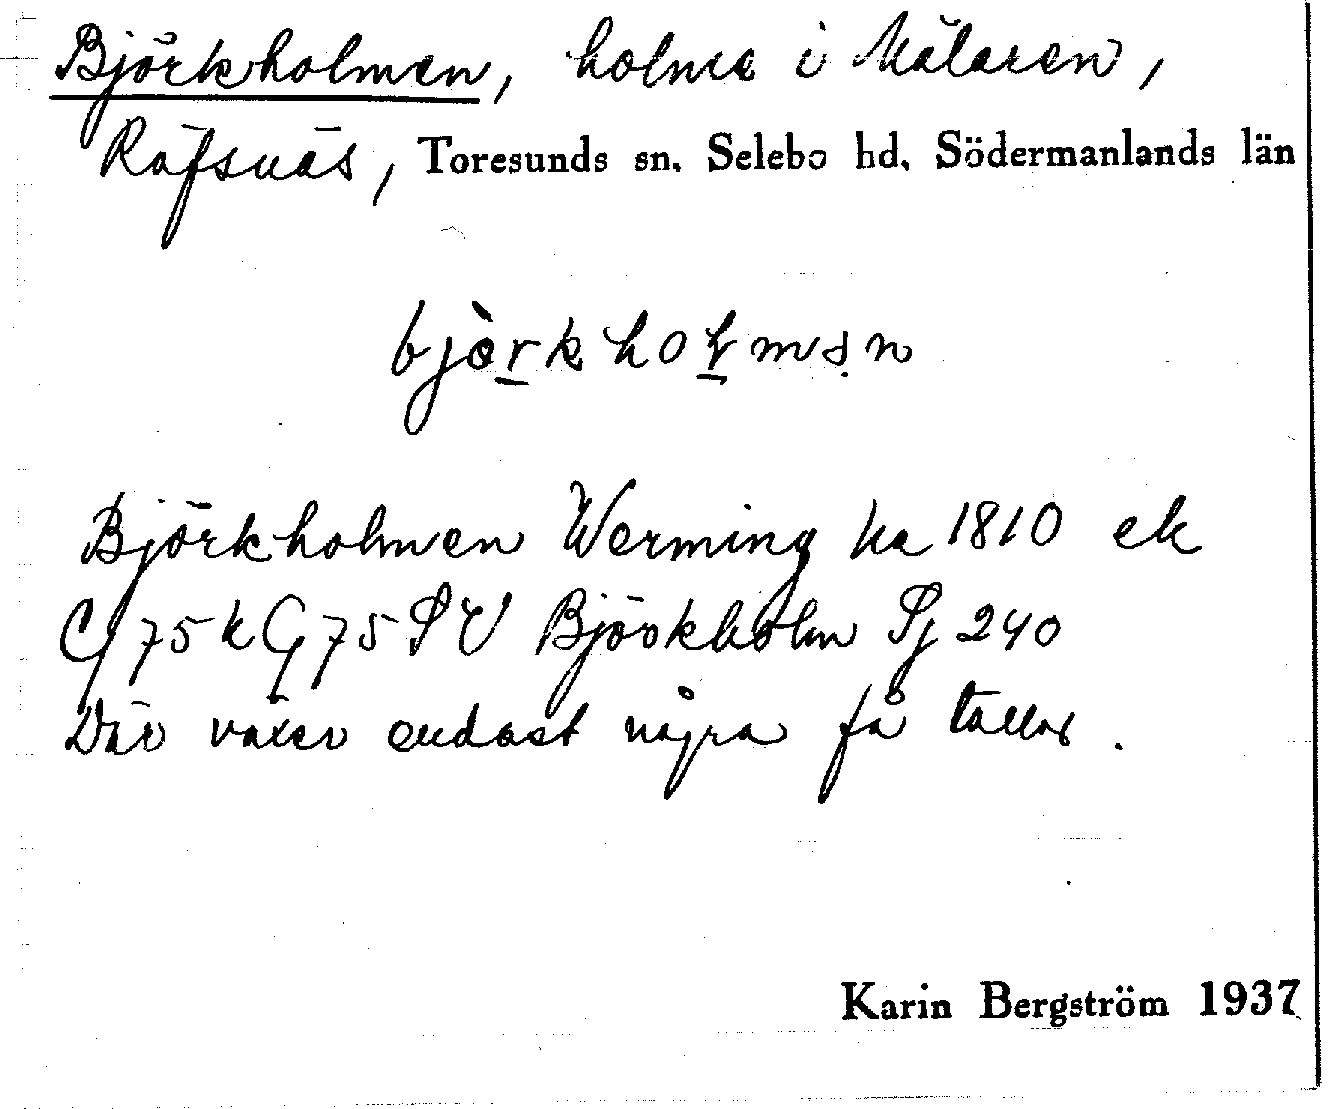 Björkholmen, holme i Mälaren,
Räfsnäs, Toresunds sn. Selebo hd. Södermanlands län
bjòrkholmən
Björkholmen Werming ka 1810 ek
G 75 k G 75 SV Björkholm Sj 240
Där växer endast några få tallar.
Karin Bergström 1937